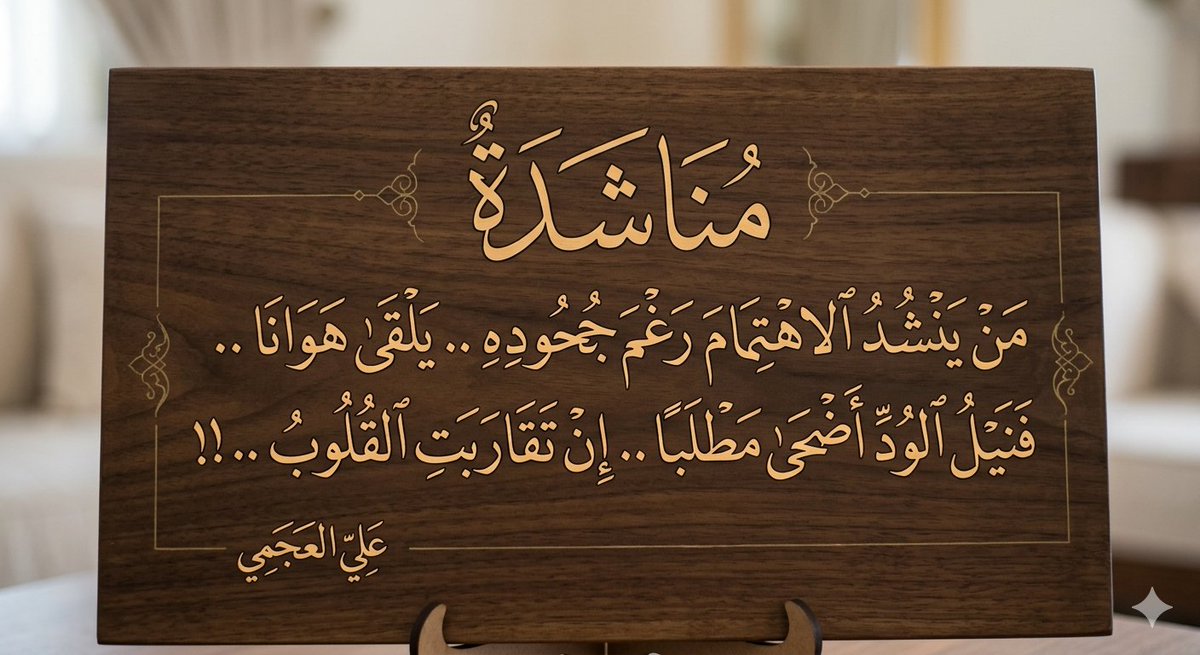 مُنَاشَدَةٌ
مَنْ يَنْشُدُ ٱلاهْتِمَامَ رَغْمَ جُحُودِهِ .. يَلْقَىٰ هَوَانَا ..
فَنَيْلُ ٱلوُدِّ أَضْحَىٰ مَطْلَبًا .. إِنْ تَقَارَبَتِ ٱلقُلُوبُ .. !!
عَلِيّ العَجَمِي